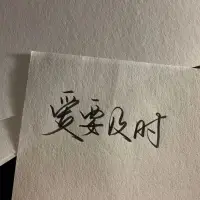 爱要及时